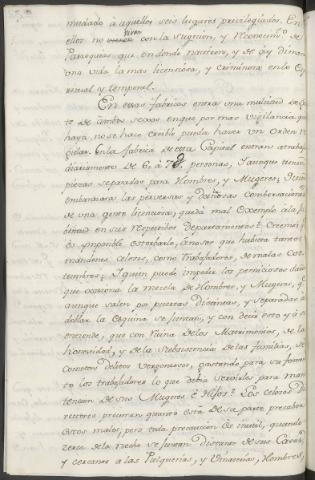 mulado à aquellos seis lugares privilegiados. En
ellos no viven con la sugecion, y Reconocim.to de
Parroquias que en donde nacieron, y de aqui dimana
una vida la mas licenciosa, y criminosa en lo Es
piritual y temporal.
En estas fabricas entran una multitud de Gen
te de ambos sexos en que por mas vigilancia que
haya, no se hace creible pueda haver un Orden re
gular. En la fabrica de esta Capital entran à trabaj
diariamente de 6. à 7@ personas, y aunque tienen
piezas separadas para Hombres, y Mugeres; quien
embarazara las perversas y dañosas combersaciones
de una gente licenciosa, que dà mal exemplo à la pu
blicidad en sus respectivos departamentos? Creemos
es ymposible estorbarlo, à no ser que hubiera tantos
mandones celosos, como trabajadores, de malas cos
tumbres; y quien puede impedir los perniciosos daños
que ocasiona la mezcla de Hombres, y Mugeres, q.e
aunque salen por puertas distintas, y separadas à
doblar la esquina se juntan, y con decir esto yà se
entiende, que con ruina de los Matrimonios, de la
honestidad, y de la subsistencia de las familias, se
cometen delitos vergonzosos, gastando para su fomen
to los trabajadores lo que debia servirles para man
tencion de sus Mugeres è Hijos? Los celosos Di
rectores procuran quanto està de su parte precaber
estos males, pero toda precaucion es inutil, quando
cerca de la noche se juntan distante de sus Casas,
y cercanos à las Pulquerias, y Vinaterias, Hombres,